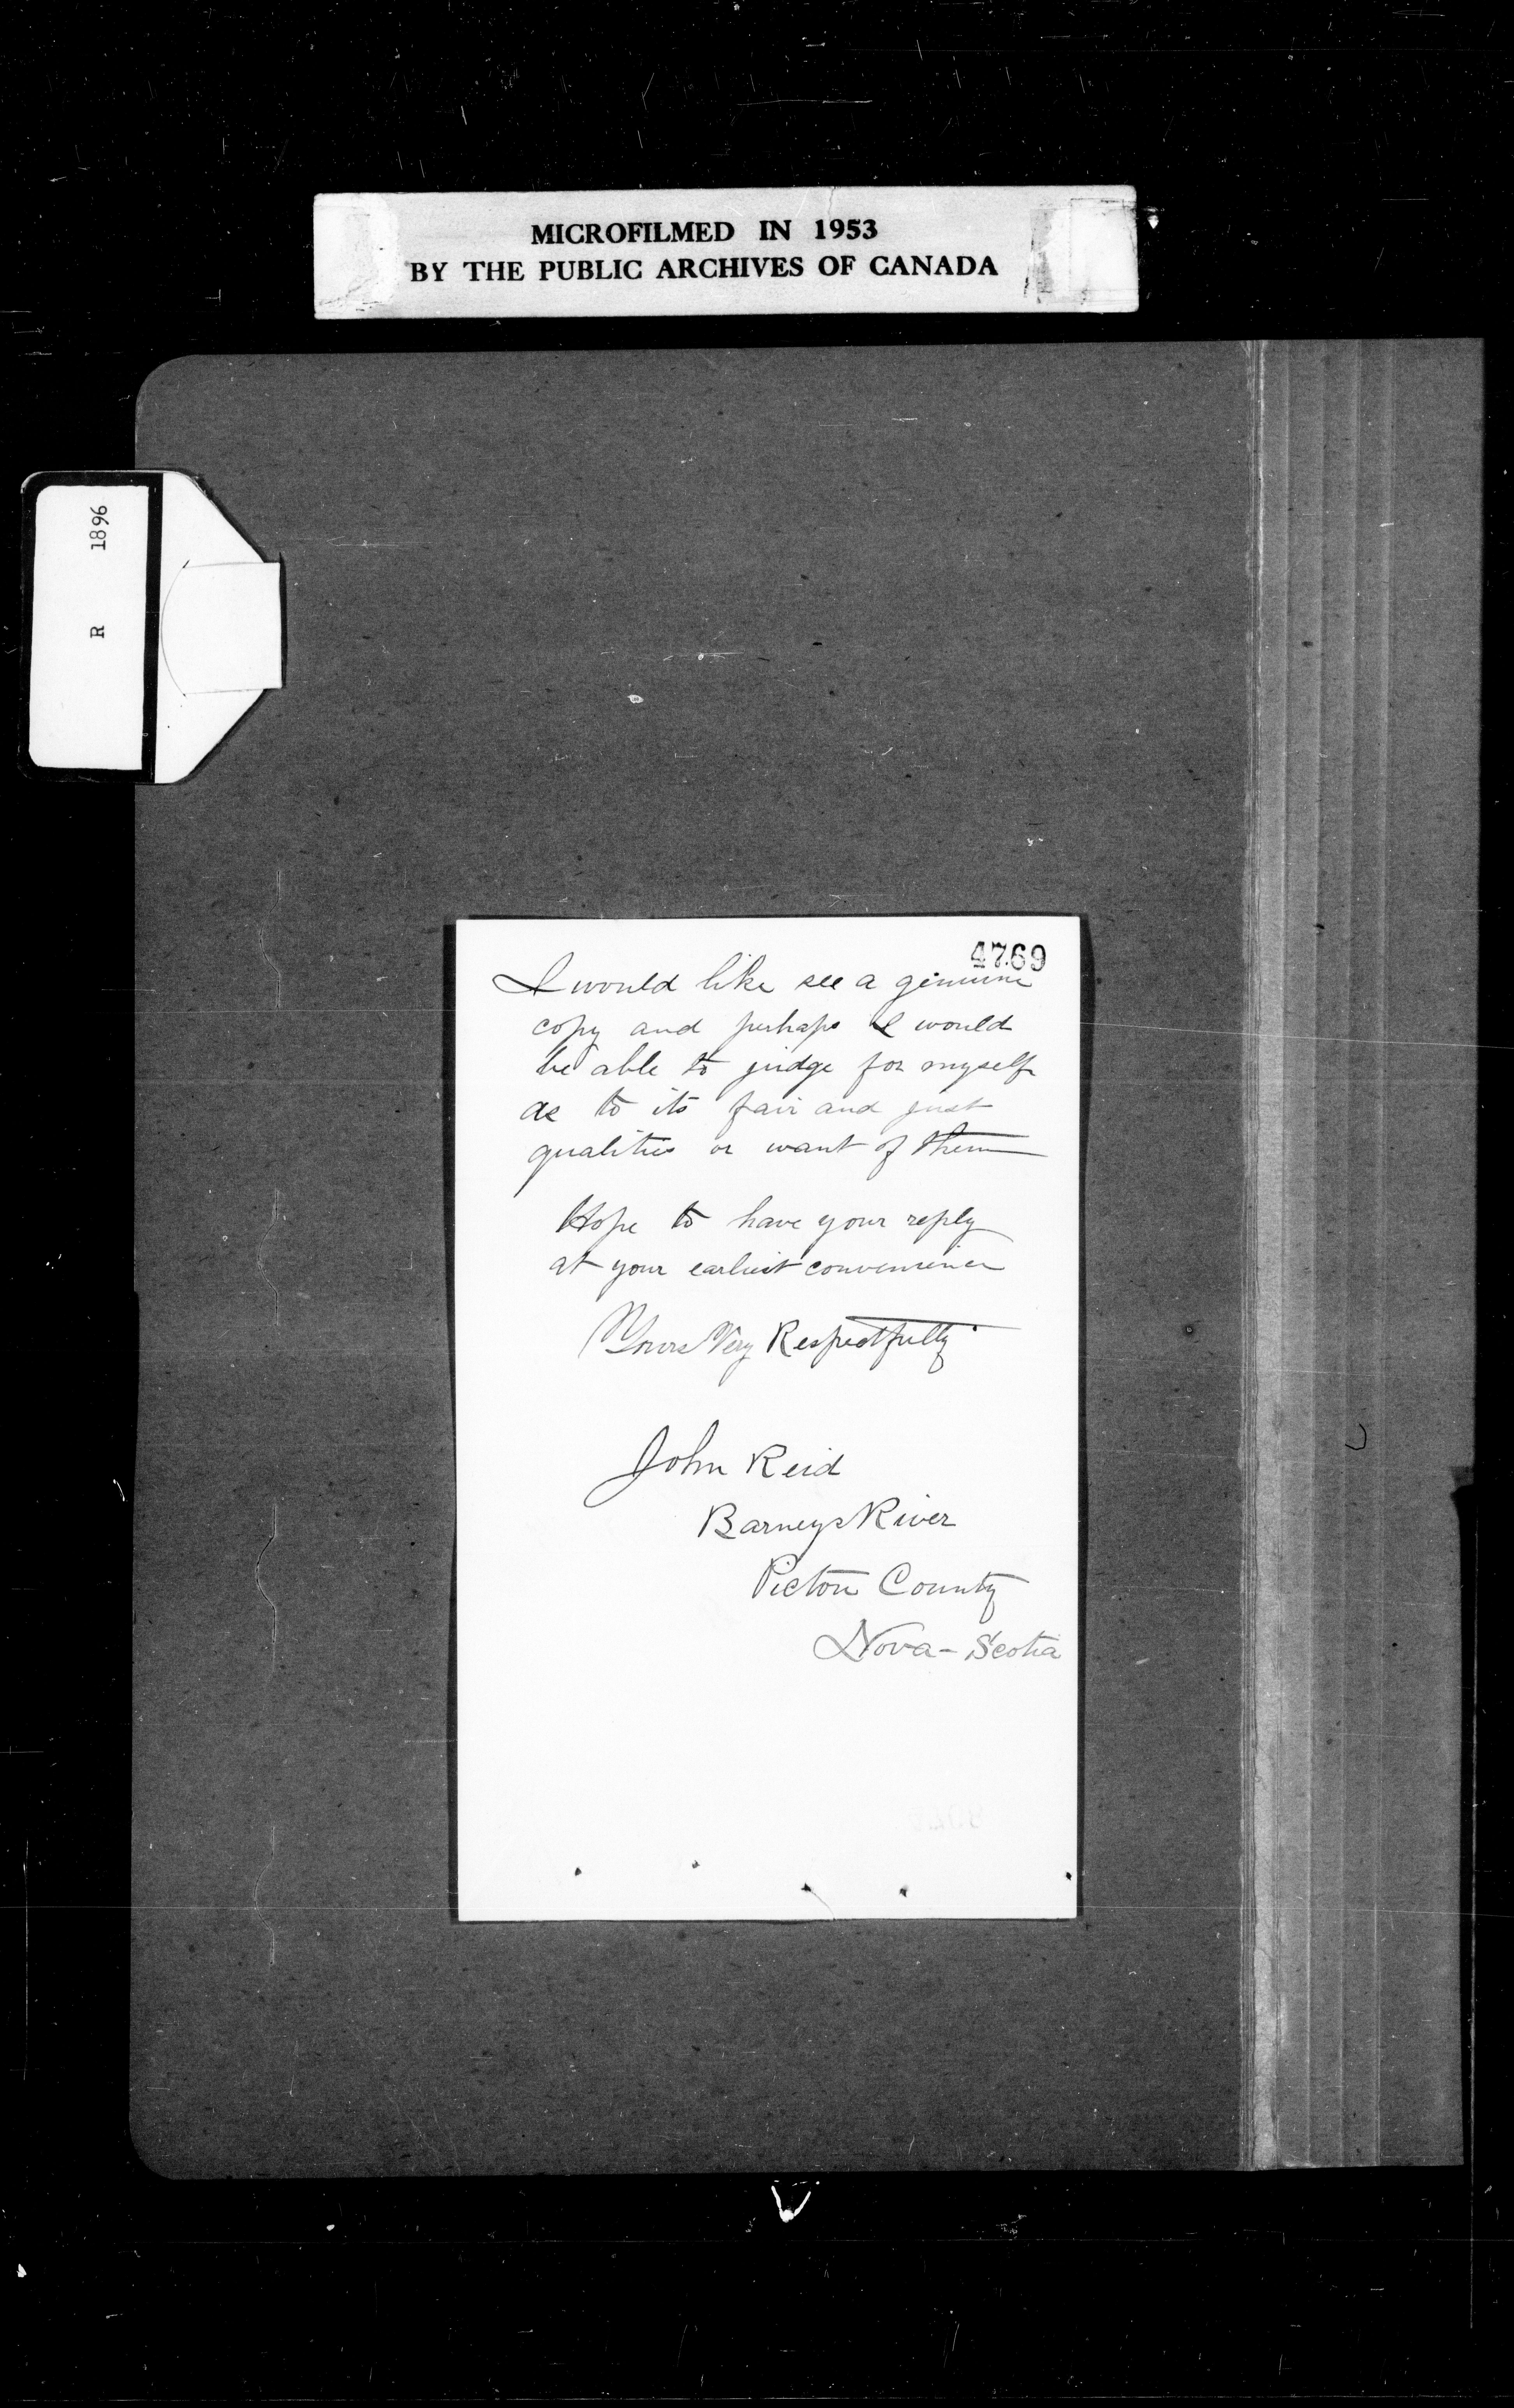 MICROFILMED IN 1953
BY THE PUBLIC ARCHIVES OF CANADA
R 1896
4769
I would like see a genuine
copy and perhaps I would
be able to judge for myself
as to its fair and just
qualities or want of them
Hope to have your reply
at your earliest convenience
Yours Very Respectfully
John Reid
Barneys River
Pictou County
Nova-Scotia